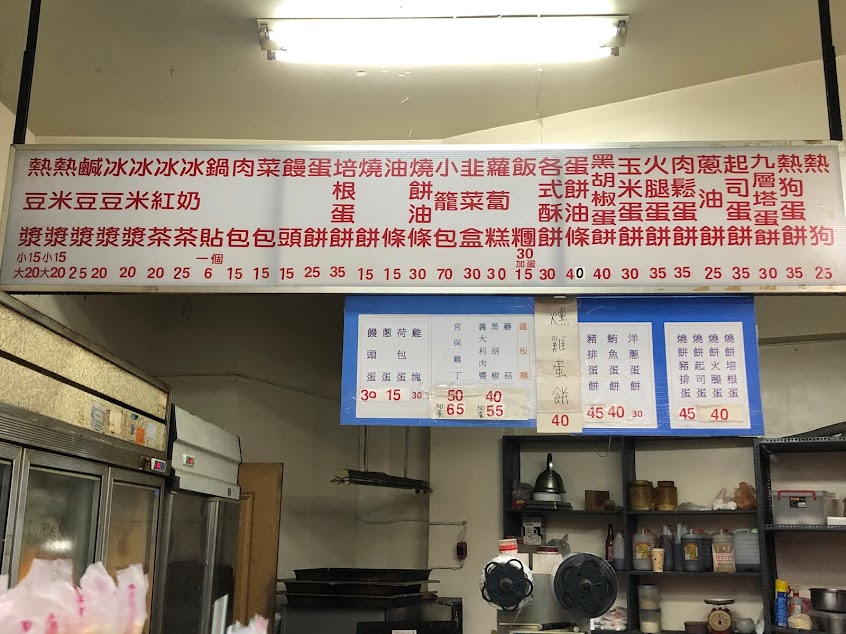 熱豆漿 小15 大20
熱米漿 小15 大20
鹹豆漿 25
冰豆漿 20
冰米漿 20
冰紅茶 20
冰奶茶 25
鍋貼 一個 6
肉包 15
菜包 15
饅頭 15
蛋餅 25
培根蛋餅 35
燒餅 15
油條 15
燒餅油條 30
小籠包 70
韭菜盒 30
蘿萄糕 30
飯糰 30 加蛋 15
各式酥餅 30
蛋餅油條 40
黑胡椒蛋餅 40
玉米蛋餅 30
火腿蛋餅 35
肉鬆蛋餅 35
蔥油餅 25
起司蛋餅 35
九層塔蛋餅 30
熱狗蛋餅 35
熱狗 25
饅頭蛋 30
蔥蛋
荷包蛋 15
雞塊 30
宮保雞丁 50 加蛋 65
義大利肉醬
黑胡椒
蘑菇
40 加蛋 55
鐵板麵
燻雞蛋餅 40
豬排蛋餅 45
鮪魚蛋餅 40
洋蔥蛋餅 30
燒餅豬排蛋 45
燒餅起司蛋
燒餅火腿蛋 40
燒餅培根蛋